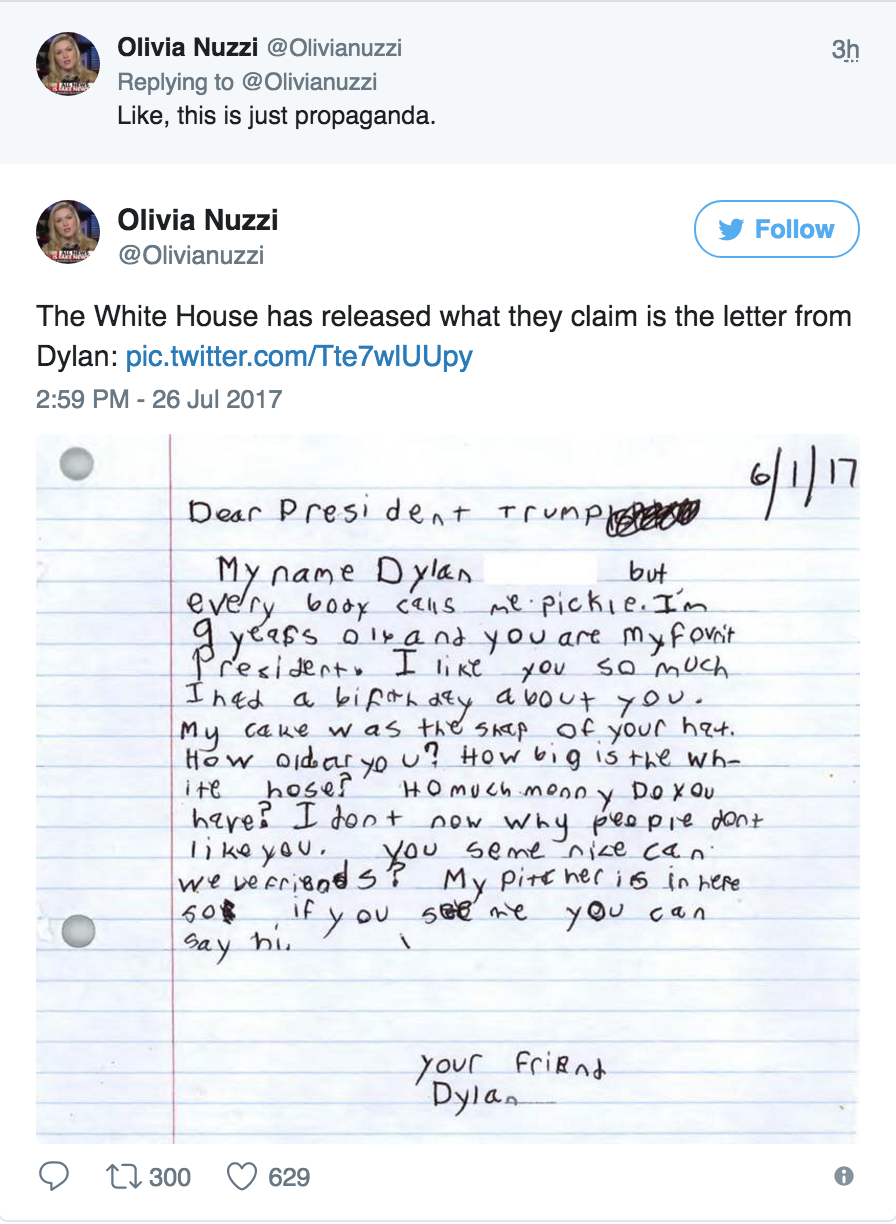 Olivia Nuzzi @Olivianuzzi 3h
Replying to @Olivianuzzi
Like, this is just propaganda.
Olivia Nuzzi
@Olivianuzzi
Follow
The White House has released what they claim is the letter from
Dylan: pic.twitter.com/Tte7wlUUpy
2:59 PM - 26 Jul 2017
6/1/17
Dear President Trump
My name Dylan but
every body calls me pickle. I'm
9 years old and you are my fovrit
President. I like you so much
I had a birthday about you.
My cake was the shap of your hat.
How old ar you? How big is the wh-
ite hose? Ho much monny Do you
have? I dont now why people dont
like you. you seme nice can
we be friends? My pitcher is in here
so if you see me you can
say hi.
your friend
Dylan
300 629